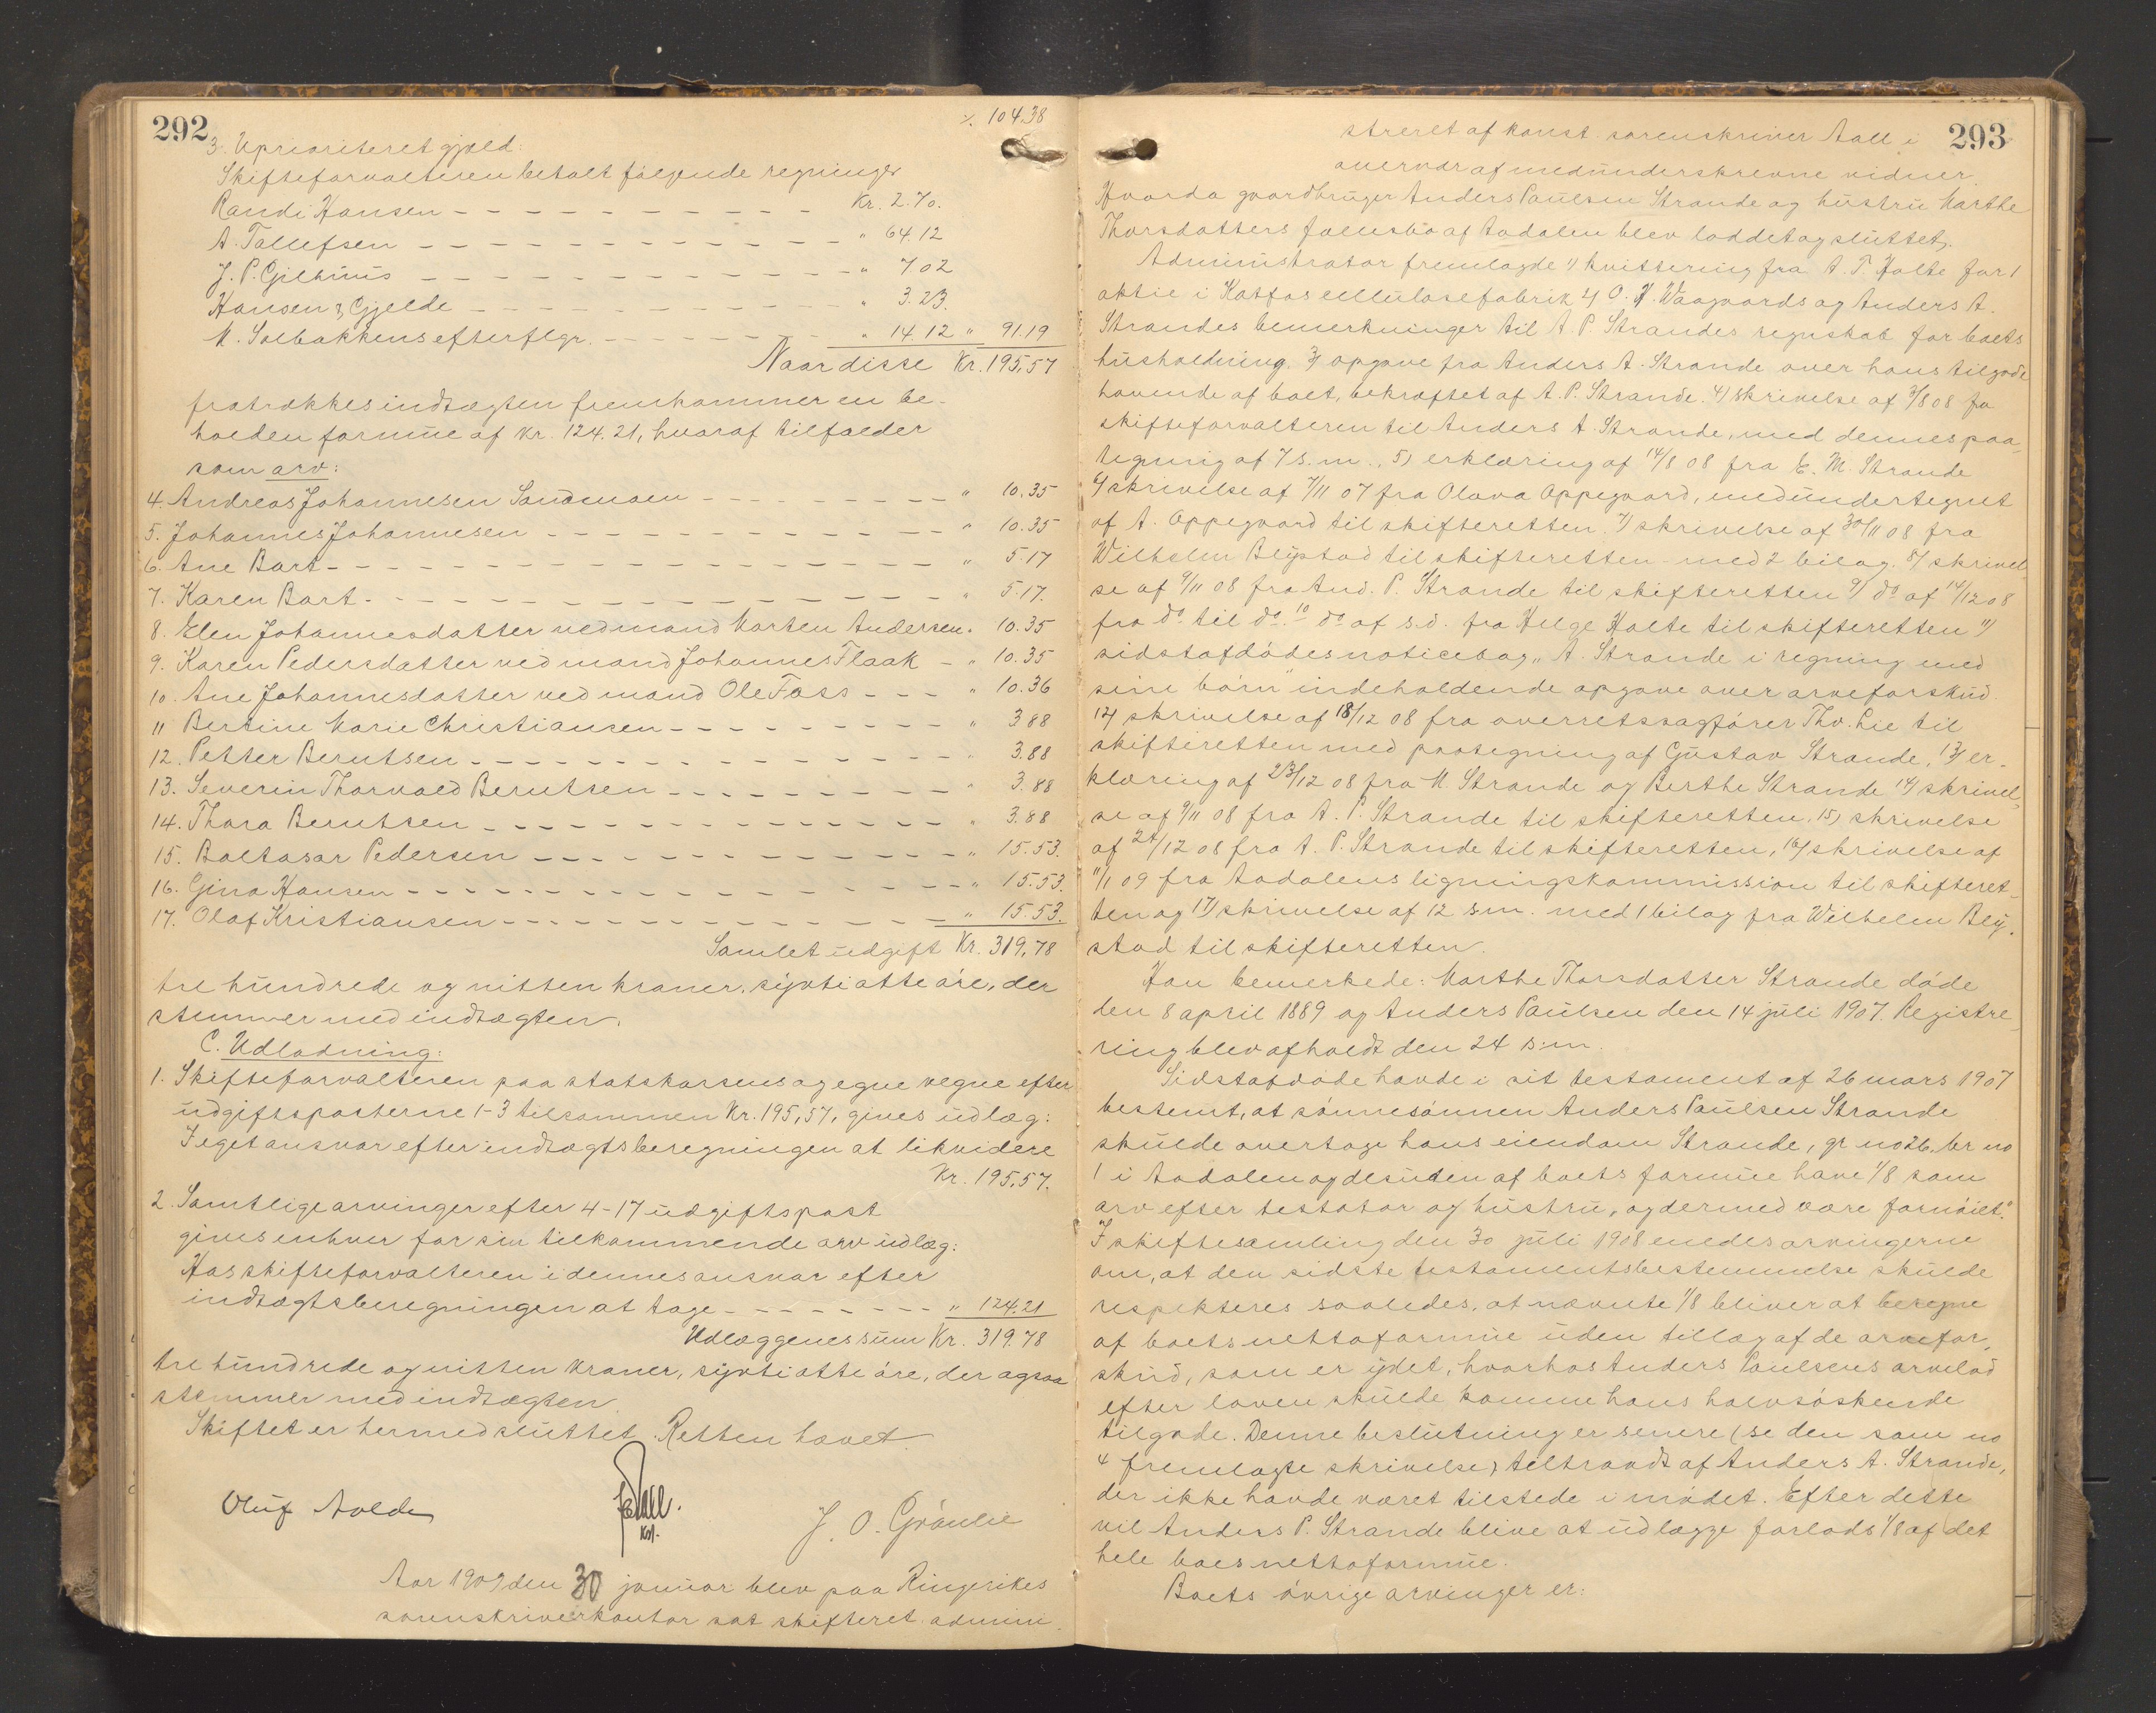 292
٪ 104.38
3. Uprioriteret gjæld:
Skifteforvalteren betalt følgende regninger
Randi Hansen Kr. 2.70.
A. Tollefsen " 64.12
J. P. Gjelhuus " 7 02
Hansen & Gjelde " 3.23.
M. Solbakkens efterflgr. " 14.12 " 91.19
Naar disse Kr. 195,57
fratrækkes indtægten fremkommer en be-
holden formue af kr. 124.21, hvoraf tilfalder
som arv:
4. Andreas Johannesen Sandmoen " 10.35
5. Johannes Johannesen " 10.35
6. Ane Bart " 5.17
7. Karen Bart " 5.17.
8. Elen Johannesdatter ved mand Marten Andersen " 10.35
9. Karen Pedersdatter ved mand Johannes Flaak " 10.35
10. Ane Johannesdatter ved mand Ole Foss " 10.36
11 Bertine Marie Christiansen " 3 88
12. Petter Berntsen " 3.88
13. Severin Thorvald Berntsen " 3.88
14. Thora Berntsen " 3.88
15. Baltasar Pedersen " 15.53.
16. Gina Hansen " 15.53.
17. Olaf Kristiansen " 15.53.
Samlet udgift Kr. 319,78
tre hundrede og nitten kroner, sytti otte øre, der
stemmer med indtægten.
C. Udlodning:
1. Skifteforvalteren paa statskassens og egne vegne efter
udgiftsposterne 1-3 tilsammen Kr. 195,57, gives udlæg:
I eget ansvar efter indtægtsberegningen at likvidere
Kr. 195,57.
2. Samtlige arvinger efter 4-17 udgiftspost
gives enhver for sin tilkommende arv udlæg:
Hos skifteforvalteren i dennes ansvar efter
indtægtsberegningen at tage " 124.21
Udlæggenes sum Kr. 319.78
tre hundrede og nitten kroner, sytti otte øre, der ogsaa
stemmer med indtægten.
Skiftet er hermed sluttet. Retten hævet.
Oluf Aolde
Aall.
kst.
J. O. Grønlie
Aar 1909 den 30 januar blev paa Ringerikes
sorenskriverkontor sat skifteret admini
293
streret af konst. sorenskriver Aall i
overvær af medunderskrevne vidner.
Hvorda gaardbruger Anders Paulsen Strande og hustru Marthe
Thorsdatters fællesbo af Aadalen blev loddet og sluttet.
Administrator fremlagde 1) kvittering fra A. T. Holte for 1
aktie i Katfos cellulosefabrik 4) O. H. Waagaards og Anders A.
Strandes bemerkninger til A. P. Strandes regnskab for boets
husholdning. 3) opgave fra Anders A. Strande over hans tilgode
havende af boet, bekræftet af A. P. Strande. 4) skrivelse af 3/8 08 fra
skifteforvalteren til Anders A. Strande, med dennes paa
tegning af 7 s.m., 5) erklæring af 14/8 08 fra E. M. Strande
6) skrivelse af 7/11 07 fra Olava Oppegaard, medundertegnet
af A. Oppegaard til skifteretten. 7) skrivelse af 30/11 08 fra
Wilhelm Blystad til skifteretten med 2 bilag. 8) skrivel
se af 9/11 08 fra And. P. Strande til skifteretten 9) do af 14/12 08
fra do til do. 10 do af s.d. fra Helge Holte til skifteretten 11)
sidstafdødes noticebog „A. Strande i regning med
sine børn" indeholdende opgave over arveforskud.
12) skrivelse af 18/12 08 fra overretssagfører Thv. Lie til
skifteretten med paategning af Gustav Strande, 13) er-
klæring af 23/12 08 fra M. Strande og Berthe Strande 14) skrivel
se af 9/11 08 fra A. P. Strande til skifteretten. 15) skrivelse
af 24/12 08 fra A. P. Strande til skifteretten, 16) skrivelse af
11/1 09 fra Aadalens ligningskommission til skifteret
ten og 17) skrivelse af 12 s.m. med 1 bilag fra Wilhelm Bly
stad til skifteretten.
Han bemerkede: Marthe Thorsdatter Strande døde
den 8 april 1889 og Anders Paulsen den 14 juli 1907. Registre
ring blev afholdt den 24 s.m.
Sidstafdøde havde i sit testament af 26 mars 1907
bestemt, at sønnesønnen Anders Paulsen Strande
skulde overtage hans eiendom Strande, gr no 26, br no
1 i Aadalen og desuden af boets formue have 1/8 som
arv efter testator og hustru, og dermed være fornøiet."
I skiftesamling den 30 juli 1908 enedes arvingerne
om, at den sidste testamentsbestemmelse skulde
respekteres saaledes, at nævnte 1/8 bliver at beregne
af boets nettoformue uden tillæg af de arvefor-
skud, som er ydet, hvorhos Anders Paulsens arvelod
efter loven skulde komme hans halvsøskende
tilgode. Denne beslutning er senere (se den som no
4 fremlagte skrivelse) tiltraadt af Anders A. Strande,
der ikke havde været tilstede i mødet. Efter dette
vil Anders P. Strande blive at udlægge forlods 1/8 af det
hele boes nettoformue.
Boets øvrige arvinger er: